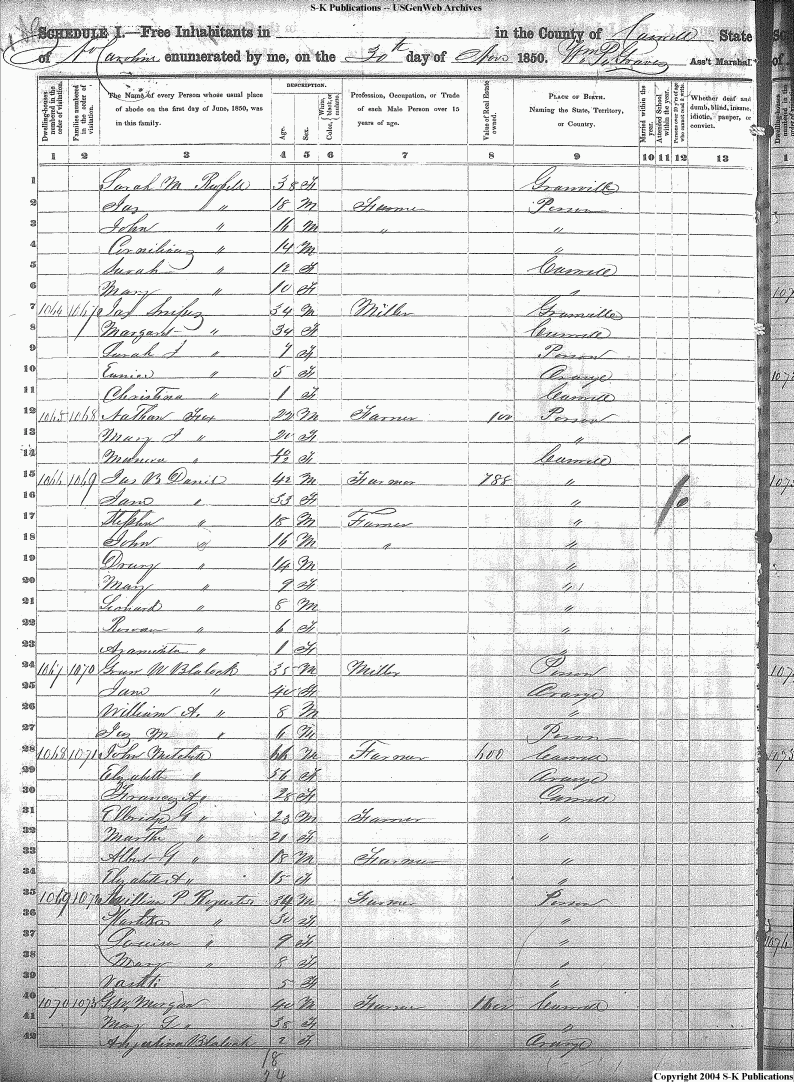 S-K Publications -- USGenWeb Archives
SCHEDULE I.—Free Inhabitants in in the County of Caswell State
of No Carolina enumerated by me, on the 30th day of Nov 1850. Wm P. Graves Ass't Marshal.
Dwelling-houses numbered in the order of visitation.
Families numbered in the order of visitation.
The Name of every Person whose usual place of abode on the first day of June, 1850, was in this family.
DESCRIPTION.
Age.
Sex.
Color, White, black, or mulatto.
Profession, Occupation, or Trade of each Male Person over 15 years of age.
Value of Real Estate owned.
PLACE OF BIRTH. Naming the State, Territory, or Country.
Married within the year.
Attended School within the year.
Persons over 20 y'rs of age who cannot read & write.
Whether deaf and dumb, blind, insane, idiotic, pauper, or convict.
1 2 3 4 5 6 7 8 9 10 11 12 13
1 Sarah M 38 F Granville
2 Jas " 18 M Farmer Person
3 John " 16 M " "
4 Cornilius " 14 M "
5 Sarah " 12 F Caswell
6 Mary " 10 F "
7 1064 1067 Jas 34 M Miller Granville
8 Margaret " 34 F Caswell
9 Sarah J " 7 F Person
10 Eunice " 5 F Orange
11 Christina " 1 F Caswell
12 1065 1068 Nathan 22 M Farmer 100 Person
13 Mary J " 20 F "
14 F Caswell
15 1066 1069 Jas B Daniel 42 M Farmer 788 "
16 Jane " 33 F "
17 Stephen " 18 M Farmer "
18 John " 16 M " "
19 Drury " 14 M "
20 Mary " 9 F "
21 Leonard " 8 M "
22 Rowan " 6 F "
23 Araminta " 1 F "
24 1067 1070 W Blalock 35 M Miller Person
25 Jane " 40 F Orange
26 William A. " 8 M "
27 M " 6 M Person
28 1068 1071 John Mitchell 66 M Farmer 600 Caswell
29 Elizabeth " 56 F Orange
30 Frances A " 28 F Caswell
31 Elbridge G " 23 M Farmer "
32 Martha " 21 F "
33 Albert G " 18 M Farmer "
34 Elizabeth A " 15 F
35 1069 1072 William P. 34 M Farmer Person
36 " 30 F "
37 Louisa " 9 F "
38 Mary " 8 F "
39 Vashti 5 F "
40 1070 1073 Morgan 40 M Farmer Caswell
41 Mary " 38 F "
42 Blalock 2 F Orange
18
24
Copyright 2004 S-K Publications